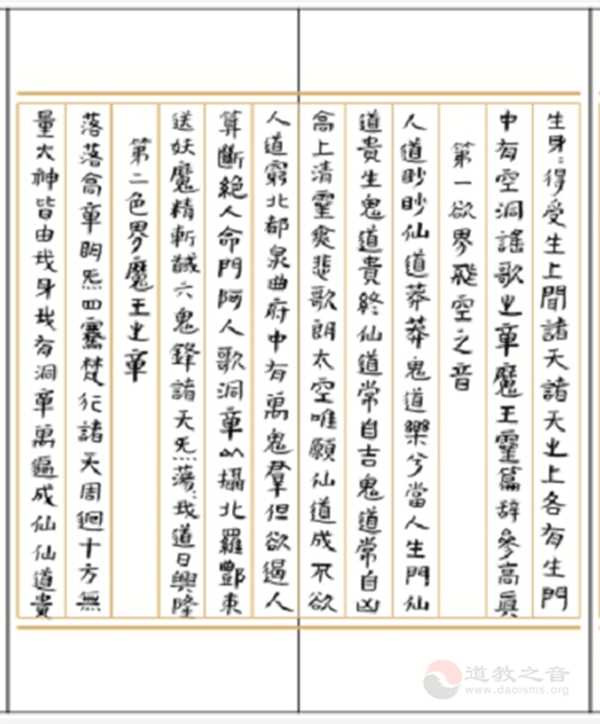 生身〻得受生上聞諸天諸天之上各有生門
中有空洞謠歌之章魔王靈篇辞參高真
第一欲界飛空之音
人道眇眇仙道莽莽鬼道樂兮當人生門仙
道貴生鬼道貴終仙道常自吉鬼道常自凶
高上清靈爽悲歌朗太空唯願仙道成不欲
人道窮北都泉曲府中有萬鬼羣但欲遏人
算斷絕人命門阿人歌洞章以攝北羅酆束
送妖魔精斬馘六鬼鋒諸天炁蕩〻我道日興隆
第二色界魔王之章
落落高章明炁四騫梵行諸天周迴十方無
量大神皆由我身我有洞章萬遍成仙仙道貴
道教之音
www.daoisms.org